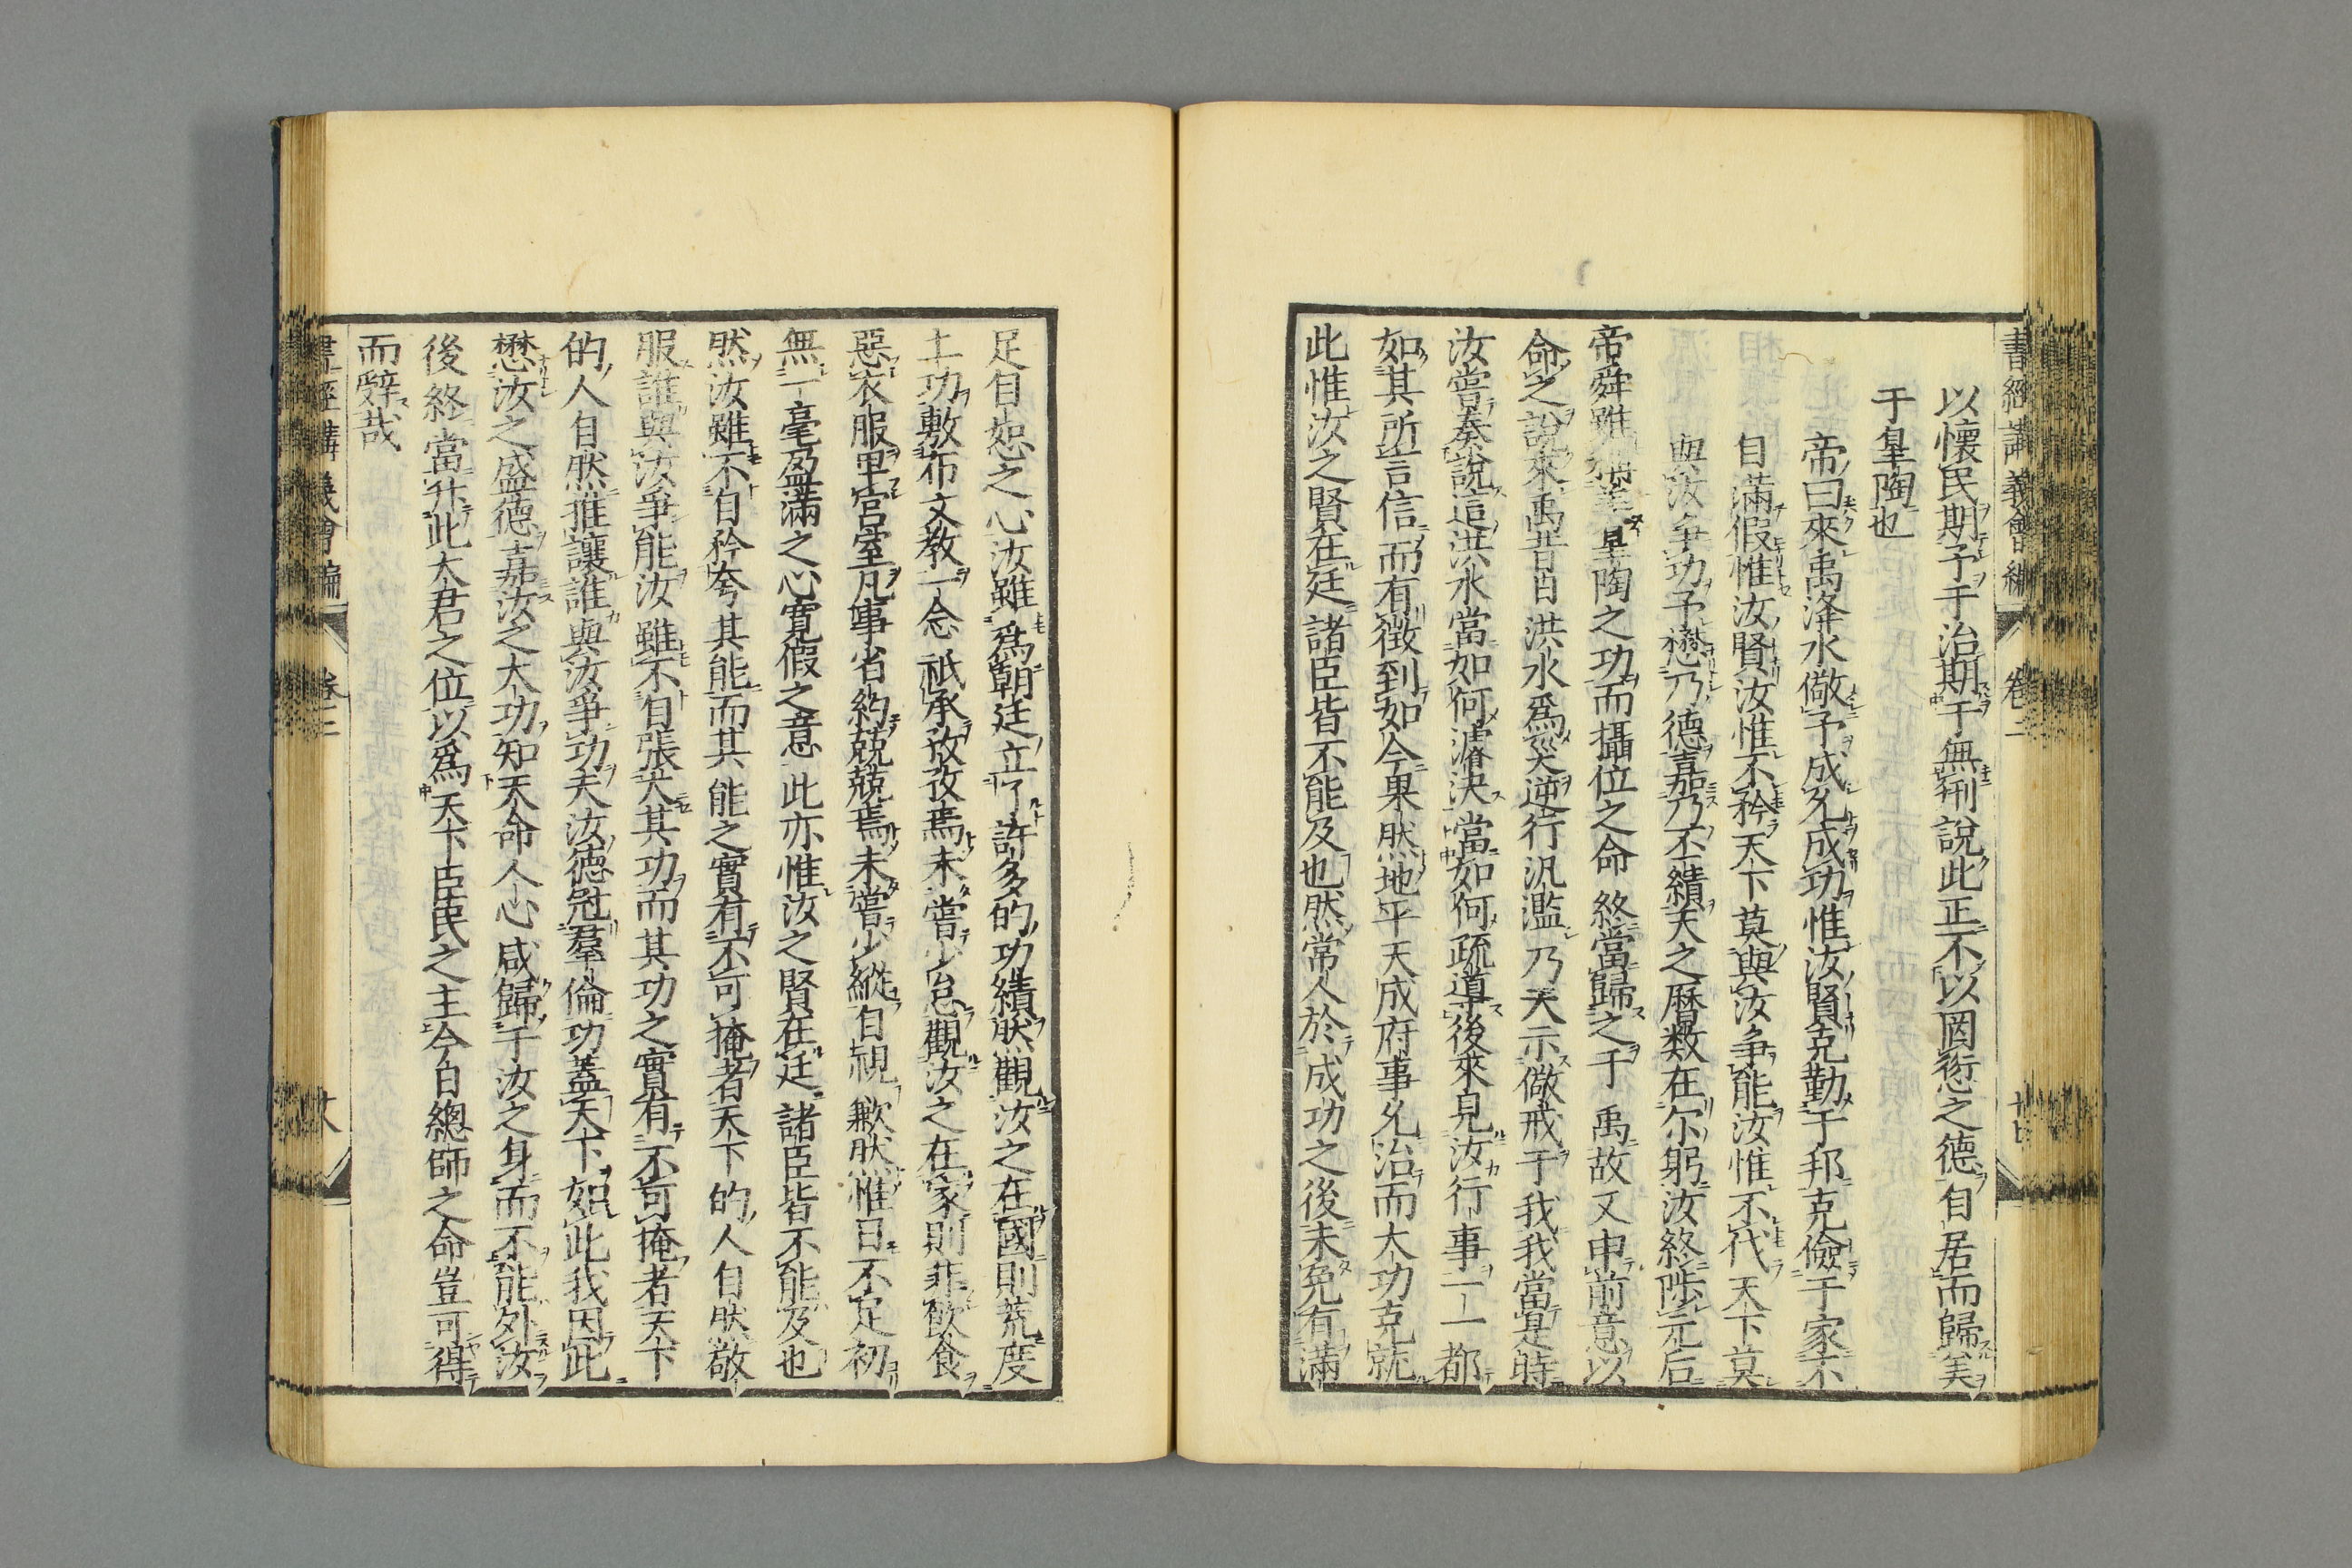 書經講義會編 卷二 廿七
以懷民期予于治期于無刑說此正不以罔愆之德自居而歸美
于皐陶也
帝曰來禹洚水儆予成允成功惟汝賢克勤于邦克儉于家不
自滿假惟汝賢汝惟不矜天下莫與汝爭能汝惟不伐天下莫
與汝爭功予懋乃德嘉乃丕績天之曆数在尔躬汝終陟元后
帝舜雖稱美皐陶之功而攝位之命終當歸之于禹故又申前意以
命之說來禹昔日洪水爲災逆行汎濫乃天示儆戒于我我當是時
汝嘗奏說這洪水當如何濬決當如何疏導後來見汝行事一一都
如其所言信而有徵到如今果然地平天成府事允治而大功克就
此惟汝之賢在廷諸臣皆不能及也然常人於成功之後未免有滿
足自恕之心汝雖爲朝廷立了許多的功績然觀汝之在國則荒度
土功敷布文教一念祗承孜孜焉未嘗少怠觀汝之在家則菲飲食
惡衣服卑宮室凡事省約兢兢焉未嘗少縱自視歉然惟日不足初
無一毫盈滿之心寬假之意此亦惟汝之賢在廷諸臣皆不能及也
然汝雖不自矜夸其能而其能之實有不可掩者天下的人自然敬
服誰與汝爭能汝雖不自張大其功而其功之實有不可掩者天下
的人自然推讓誰與汝爭功夫汝德冠羣倫功蓋天下如此我因此
懋汝之盛德嘉汝之大功知天命人心咸歸于汝之身而不能外汝
後終當升此大君之位以爲天下臣民之主今日總師之命豈可得
而辭哉
書經講義會編 卷二